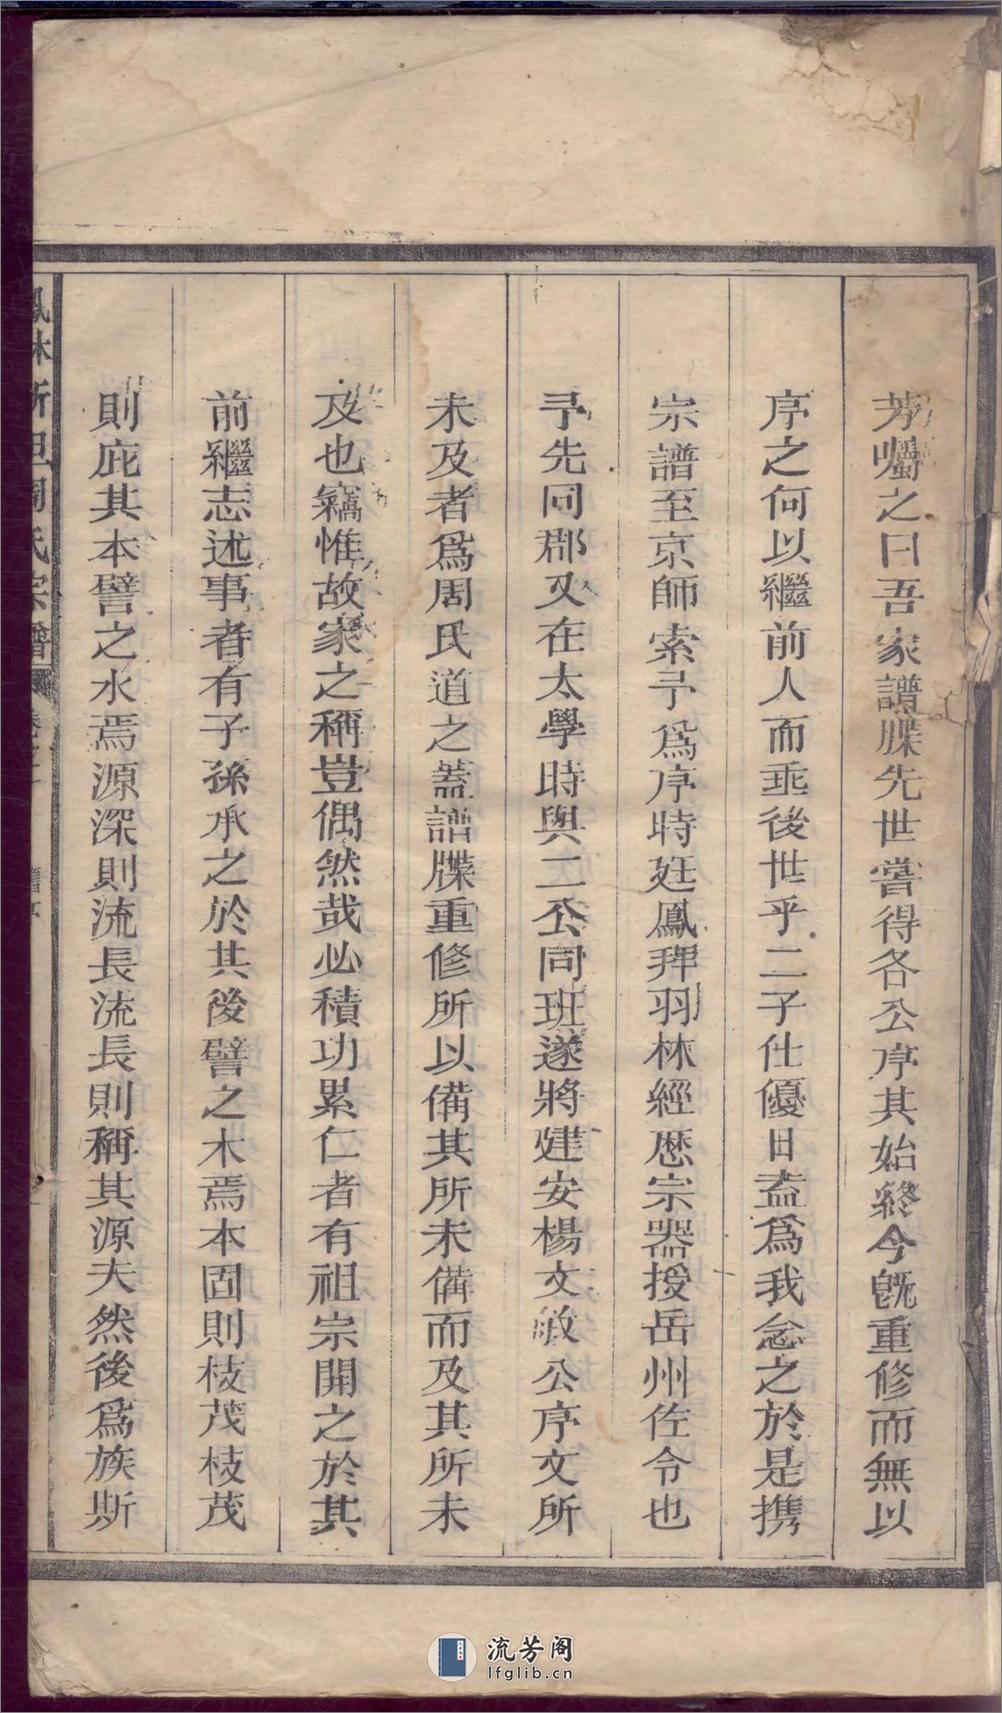 芳囑之曰吾家譜牒先世嘗得各公序其始終今旣重修而無以
序之何以繼前人而垂後世乎二子仕優日盍爲我念之於是携
宗譜至京師索予爲序時廷鳳拜羽林經歷宗器授岳州佐令也
予先同郡又在太學時與二公同班遂將建安楊文敏公序文所
未及者爲周氏道之蓋譜牒重修所以備其所未備而及其所未
及也竊惟故家之稱豈偶然哉必積功累仁者有祖宗開之於其
前繼志述事者有子孫承之於其後譬之木焉本固則枝茂枝茂
則庇其本譬之水焉源深則流長流長則稱其源夫然後爲族斯
周氏宗譜
流芳阁
lfglib.cn